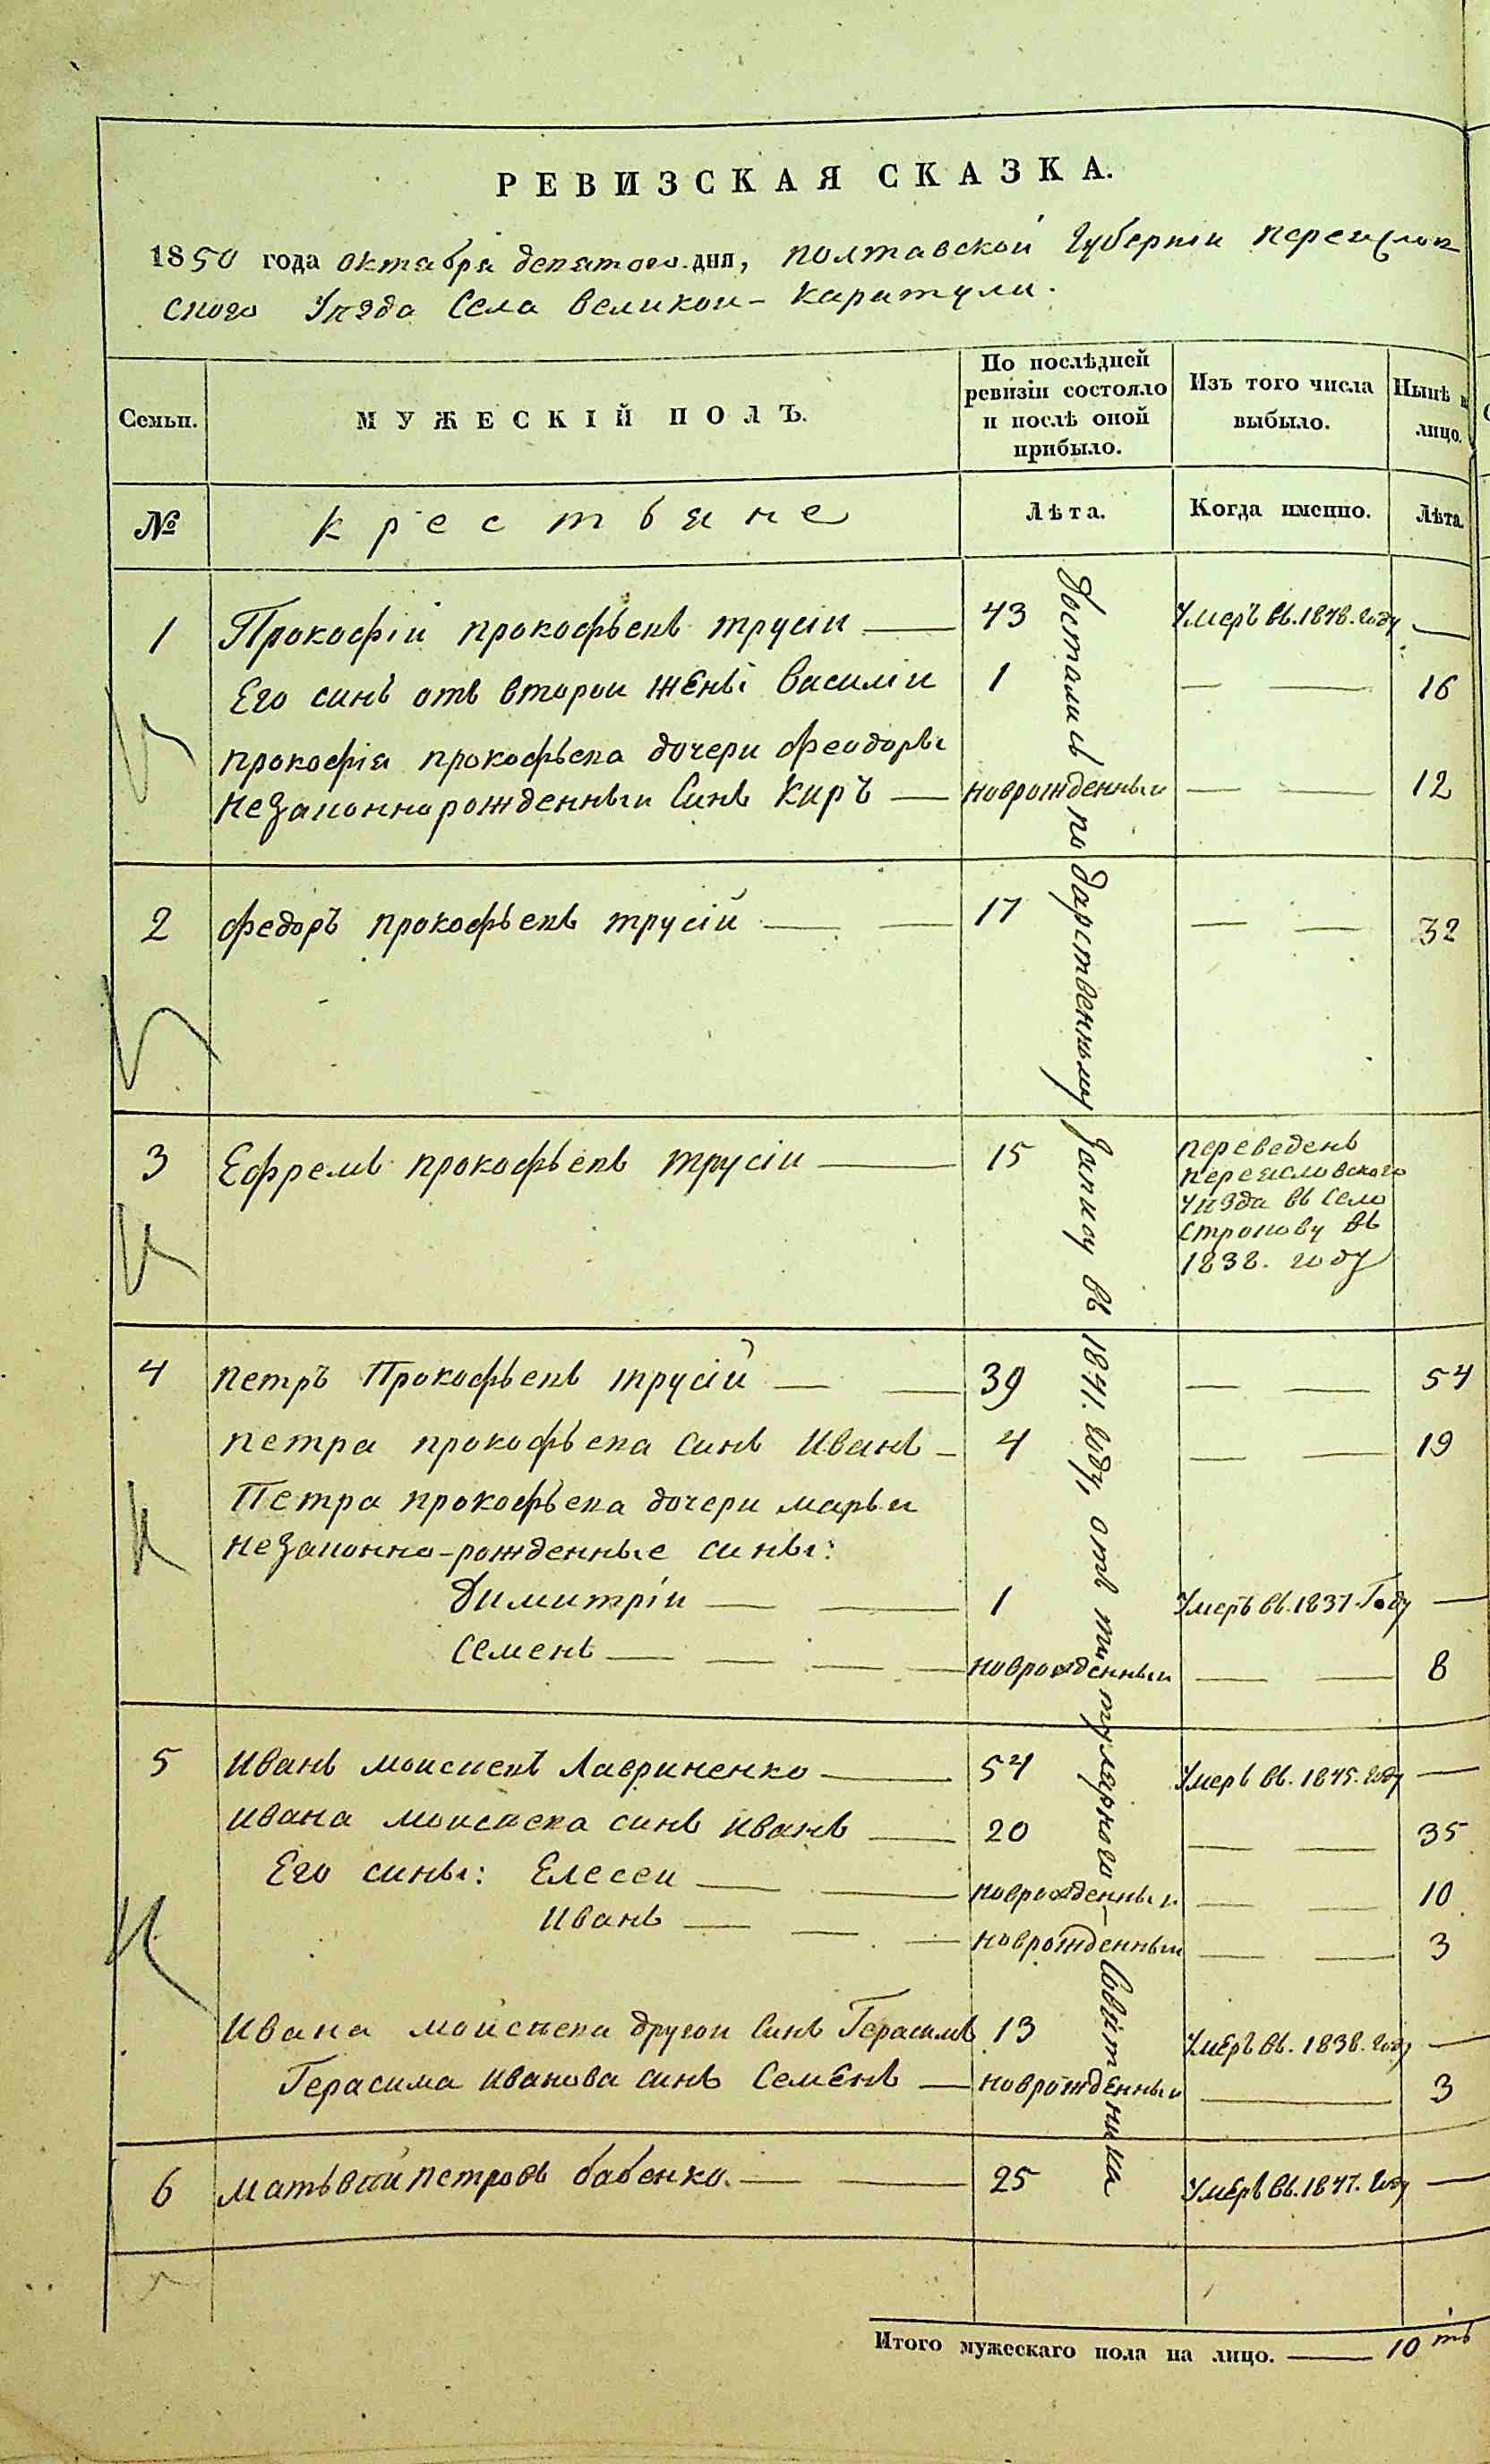 РЕВИЗСКАЯ СКАЗКА.
1850 года октабря девятого дня, полтавской Губернiи переяслов-
ского Уезда Села великои-каратули.
Семьи.
МУЖЕСКIЙ ПОЛЪ.
По послѣдней ревизiи состояло и послѣ оной прибыло.
Изъ того числа выбыло.
Нынѣ н лицо.
№
крестьяне
Лѣта.
Когда именно.
Лѣта.
1 Прокофiи прокофьевъ трусiи — 43 Умеръ въ. 1848. году —
Его синъ отъ второи женьi василiи 1 — — 16
прокофiя прокофьева дочери феодорьi
незаконнорожденныи Синъ Киръ — новрожденныи — — 12
2 федоръ прокофьевъ трусiй — — 17 — — 32
3 Ефремъ прокофьевъ трусiи — 15 переведенъ
переясловского
уезда въ село
строкову въ
1838. году
4 петръ Прокофьевъ трусiй — — 39 — — 54
петра прокофьева синъ иванъ — 4 — — 19
Петра прокофьева дочери марьи
незаконно-рожденные сины:
Димитрiи — — 1 Умеръ въ. 1837. Году —
Семенъ — — — — новрожденныи — — 8
5 иванъ моисиевъ Лавриненко — 54 Умеръ въ. 1845. году —
ивана моисиева синъ иванъ — 20 — — 35
Его сины: Елесеи — — новрожденныи — — 10
иванъ — — — новрожденныи — — 3
ивана моисиева другои Синъ Герасимъ 13 Умеръ въ. 1838. году —
Герасима иванова синъ Семенъ — новрожденныи — 3
6 матьвѣй петровъ бабенко. — — 25 Умеръ въ. 1847. году —
Достались по дарственному Запису въ 1841. году, отъ титулярного-Совѣтника
Итого мужескаго пола на лицо. — 10 тъ